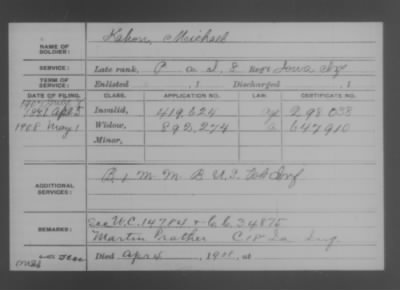 NAME OF SOLDIER: Michael
SERVICE: Late rank, P Co. I, 8 Reg't Iowa Inf
TERM OF SERVICE: Enlisted , 1 Discharged , 1
DATE OF FILING. CLASS. APPLICATION NO. LAW. CERTIFICATE NO.
Invalid, 419,624 298 038
1908 May 1 Widow, 892,274 647910
Minor,
ADDITIONAL SERVICES: B U.S. Inf
REMARKS: See W.C. 14784 + C.C. 34875
Martin Prather C 18 Ia Inf.
Died Apr 4, 1908, at